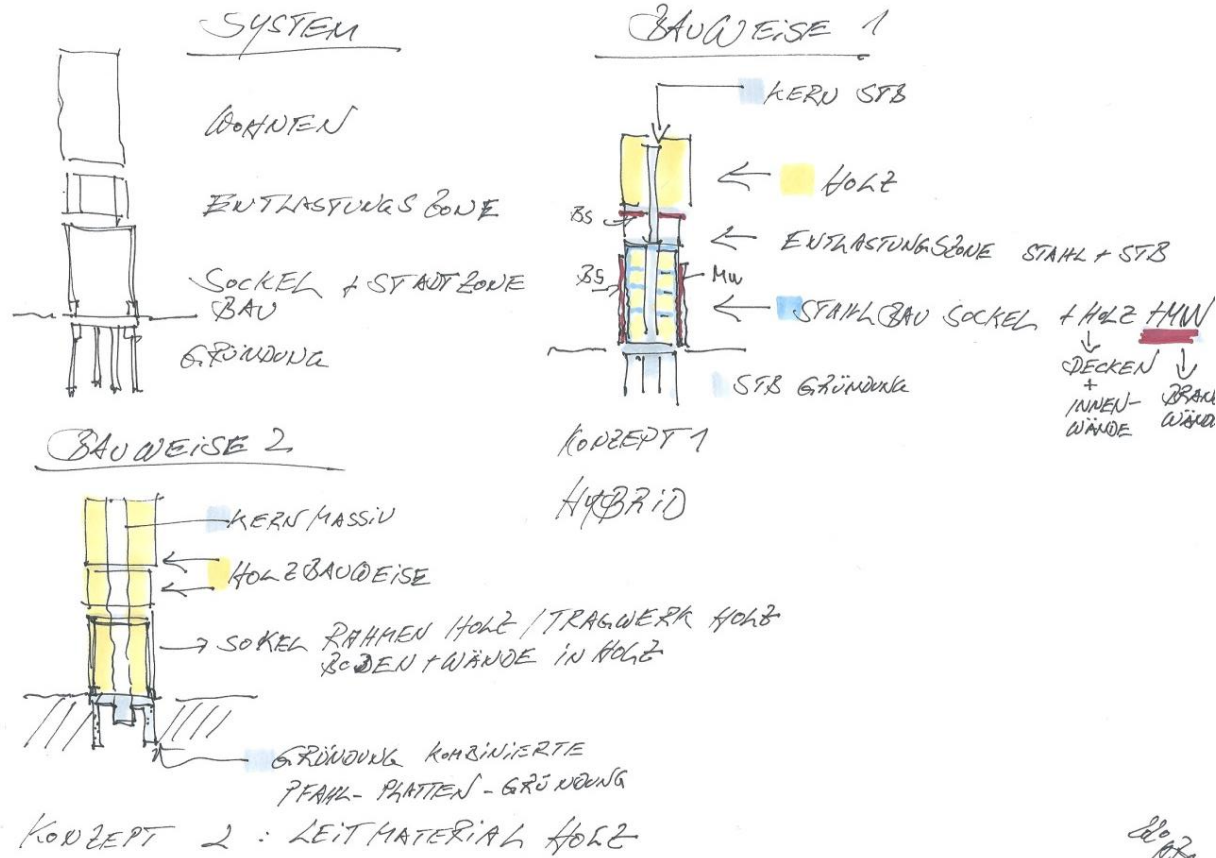 SYSTEM
WOHNEN
ENTLASTUNGSZONE
SOCKEL + STADTZONE
BAU
GRÜNDUNG
BAUWEISE 1
KERN STB
HOLZ
BS
ENTLASTUNGSZONE STAHL + STB
BS
MW
STAHLBAU SOCKEL + HOLZ + MW
DECKEN
+
INNEN-
WÄNDE
BRAND
WÄNDE
STB GRÜNDUNG
KONZEPT 1
HYBRID
BAUWEISE 2
KERN MASSIV
HOLZBAUWEISE
SOKEL RAHMEN HOLZ / TRAGWERK HOLZ
BODEN + WÄNDE IN HOLZ
GRÜNDUNG KOMBINIERTE
PFAHL-PLATTEN-GRÜNDUNG
KONZEPT 2 : LEITMATERIAL HOLZ